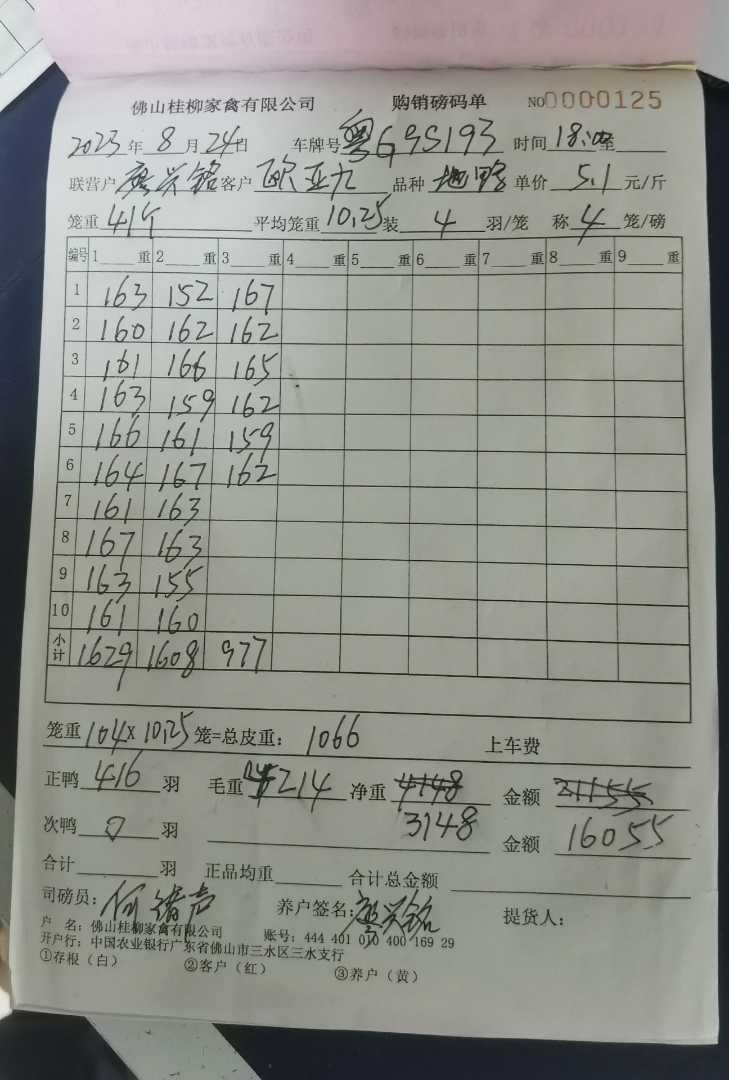 佛山桂柳家禽有限公司 购销磅码单 NO0000125
2023年8月24日 车牌号粤G9S193 时间18:00至
联营户廖兴铭客户欧亚九 品种 单价5.1元/斤
笼重41个 平均笼重10.25装4羽/笼 称4笼/磅
编号 1 重 2 重 3 重 4 重 5 重 6 重 7 重 8 重 9 重
1 163 152 167
2 160 162 162
3 161 166 165
4 163 159 162
5 166 161 159
6 164 167 162
7 161 163
8 167 163
9 163 155
10 161 160
小计 1629 1608 977
笼重104×10.25笼=总皮重：1066 上车费
正鸭416羽 毛重4214 净重 金额
3148
次鸭0羽 金额16055
合计 羽 正品均重 合计总金额
司磅员： 养户签名：廖兴铭 提货人：
户 名：佛山桂柳家禽有限公司 账号：444 401 010 400 169 29
开户行：中国农业银行广东省佛山市三水区三水支行
①存根（白） ②客户（红） ③养户（黄）